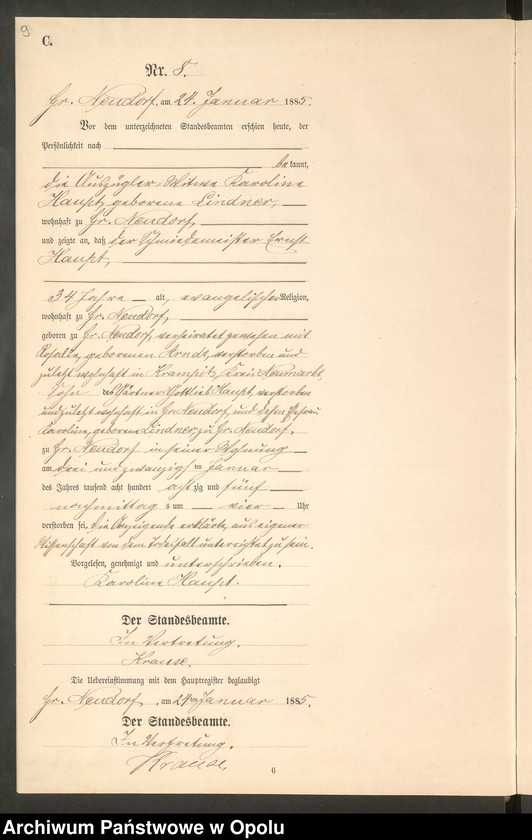 9
C.
Nr. 8.
Gr. Neudorf, am 24. Januar 1885.
Vor dem unterzeichneten Standesbeamten erschien heute, der
Persönlichkeit nach
bekannt,
die Auszügler-Witwe Karoline
Haupt, geborene Lindner,
wohnhaft zu Gr. Neudorf,
und zeigte an, daß der Schmiedemeister Ernst
Haupt,
34 Jahre alt, evangelischer Religion,
wohnhaft zu Gr. Neudorf,
geboren zu Gr. Neudorf, verheiratet gewesen mit
Rosalie, geborenen Arndt, verstorben und
zuletzt wohnhaft in Krampitz, Kreis Neumarkt,
Sohn des Gärtner Gottlieb Haupt, verstorben
und zuletzt wohnhaft in Gr. Neudorf, und dessen Ehefrau
Karoline, geborene Lindner, zu Gr. Neudorf.
zu Gr. Neudorf in seiner Wohnung
am drei und zwanzigsten Januar
des Jahres tausend acht hundert achtzig und fünf
nachmittags um vier Uhr
verstorben sei, die Anzeigende erklärte, aus eigener
Wissenschaft von dem Todesfall unterrichtet zu sein.
Vorgelesen, genehmigt und unterschrieben.
Karoline Haupt.
Der Standesbeamte.
In Vertretung.
Krause.
Die Uebereinstimmung mit dem Hauptregister beglaubigt
Gr. Neudorf, am 24ten Januar 1885.
Der Standesbeamte.
In Vertretung.
Krause.
6
Archiwum Państwowe w Opolu